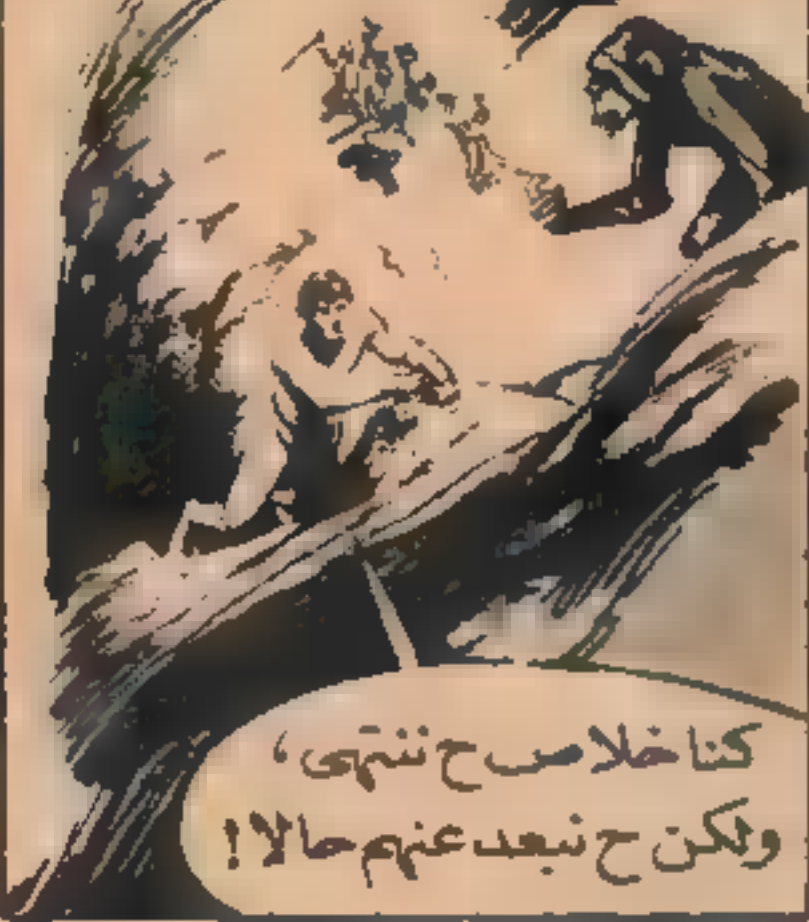 كنا خلاص ح ننتهى ،
ولكن ح نبعد عنهم حالا !